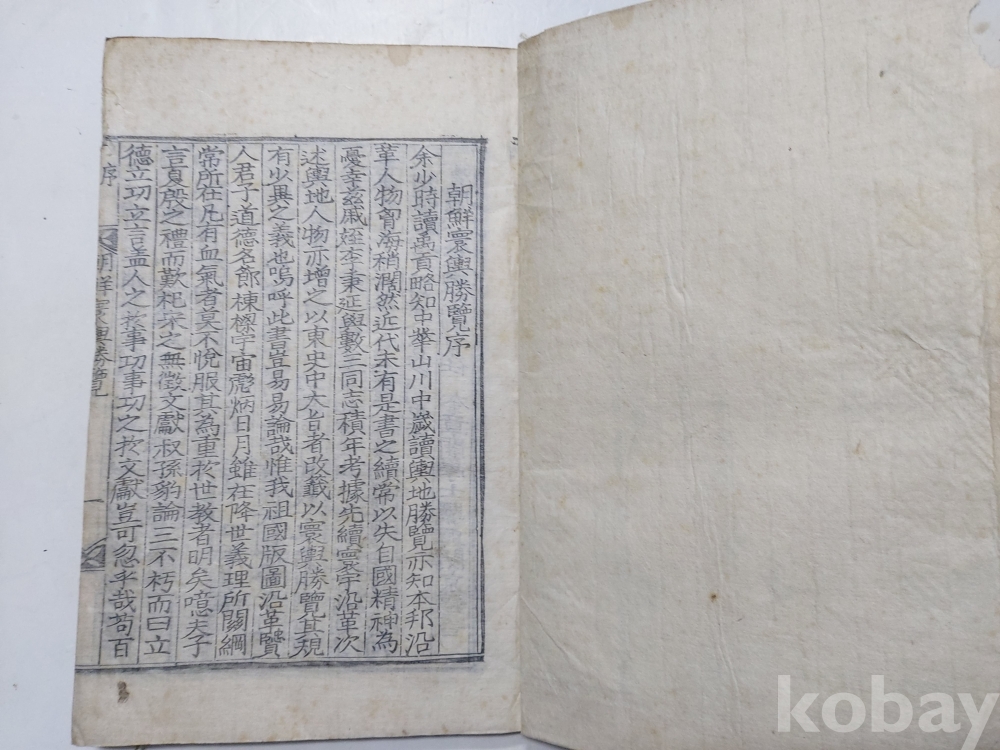 朝鮮寰輿勝覽序
余少時讀禹貢略知中華山川中歲讀輿地勝覽亦知本邦沿
革人物胷海稍濶然近代未有是書之續常以失自國精神為
憂幸玆戚姪李秉延與數三同志積年考據先續寰宇沿革次
述輿地人物亦增之以東史中大旨者改籤以寰輿勝覽其規
有少異之義也嗚呼此書豈易易論哉惟我祖國版圖沿革賢
人君子道德名節棟樑宇宙彪炳日月雖在降世義理所關綱
常所在凡有血氣者莫不悅服其為重於世教者明矣噫夫子
言夏殷之禮而歎杞宋之無徵文獻叔孫豹論三不朽而曰立
德立功立言盖人之於事功事功之於文獻豈可忽乎哉苟百
序
朝鮮寰輿勝覽
一
kobay